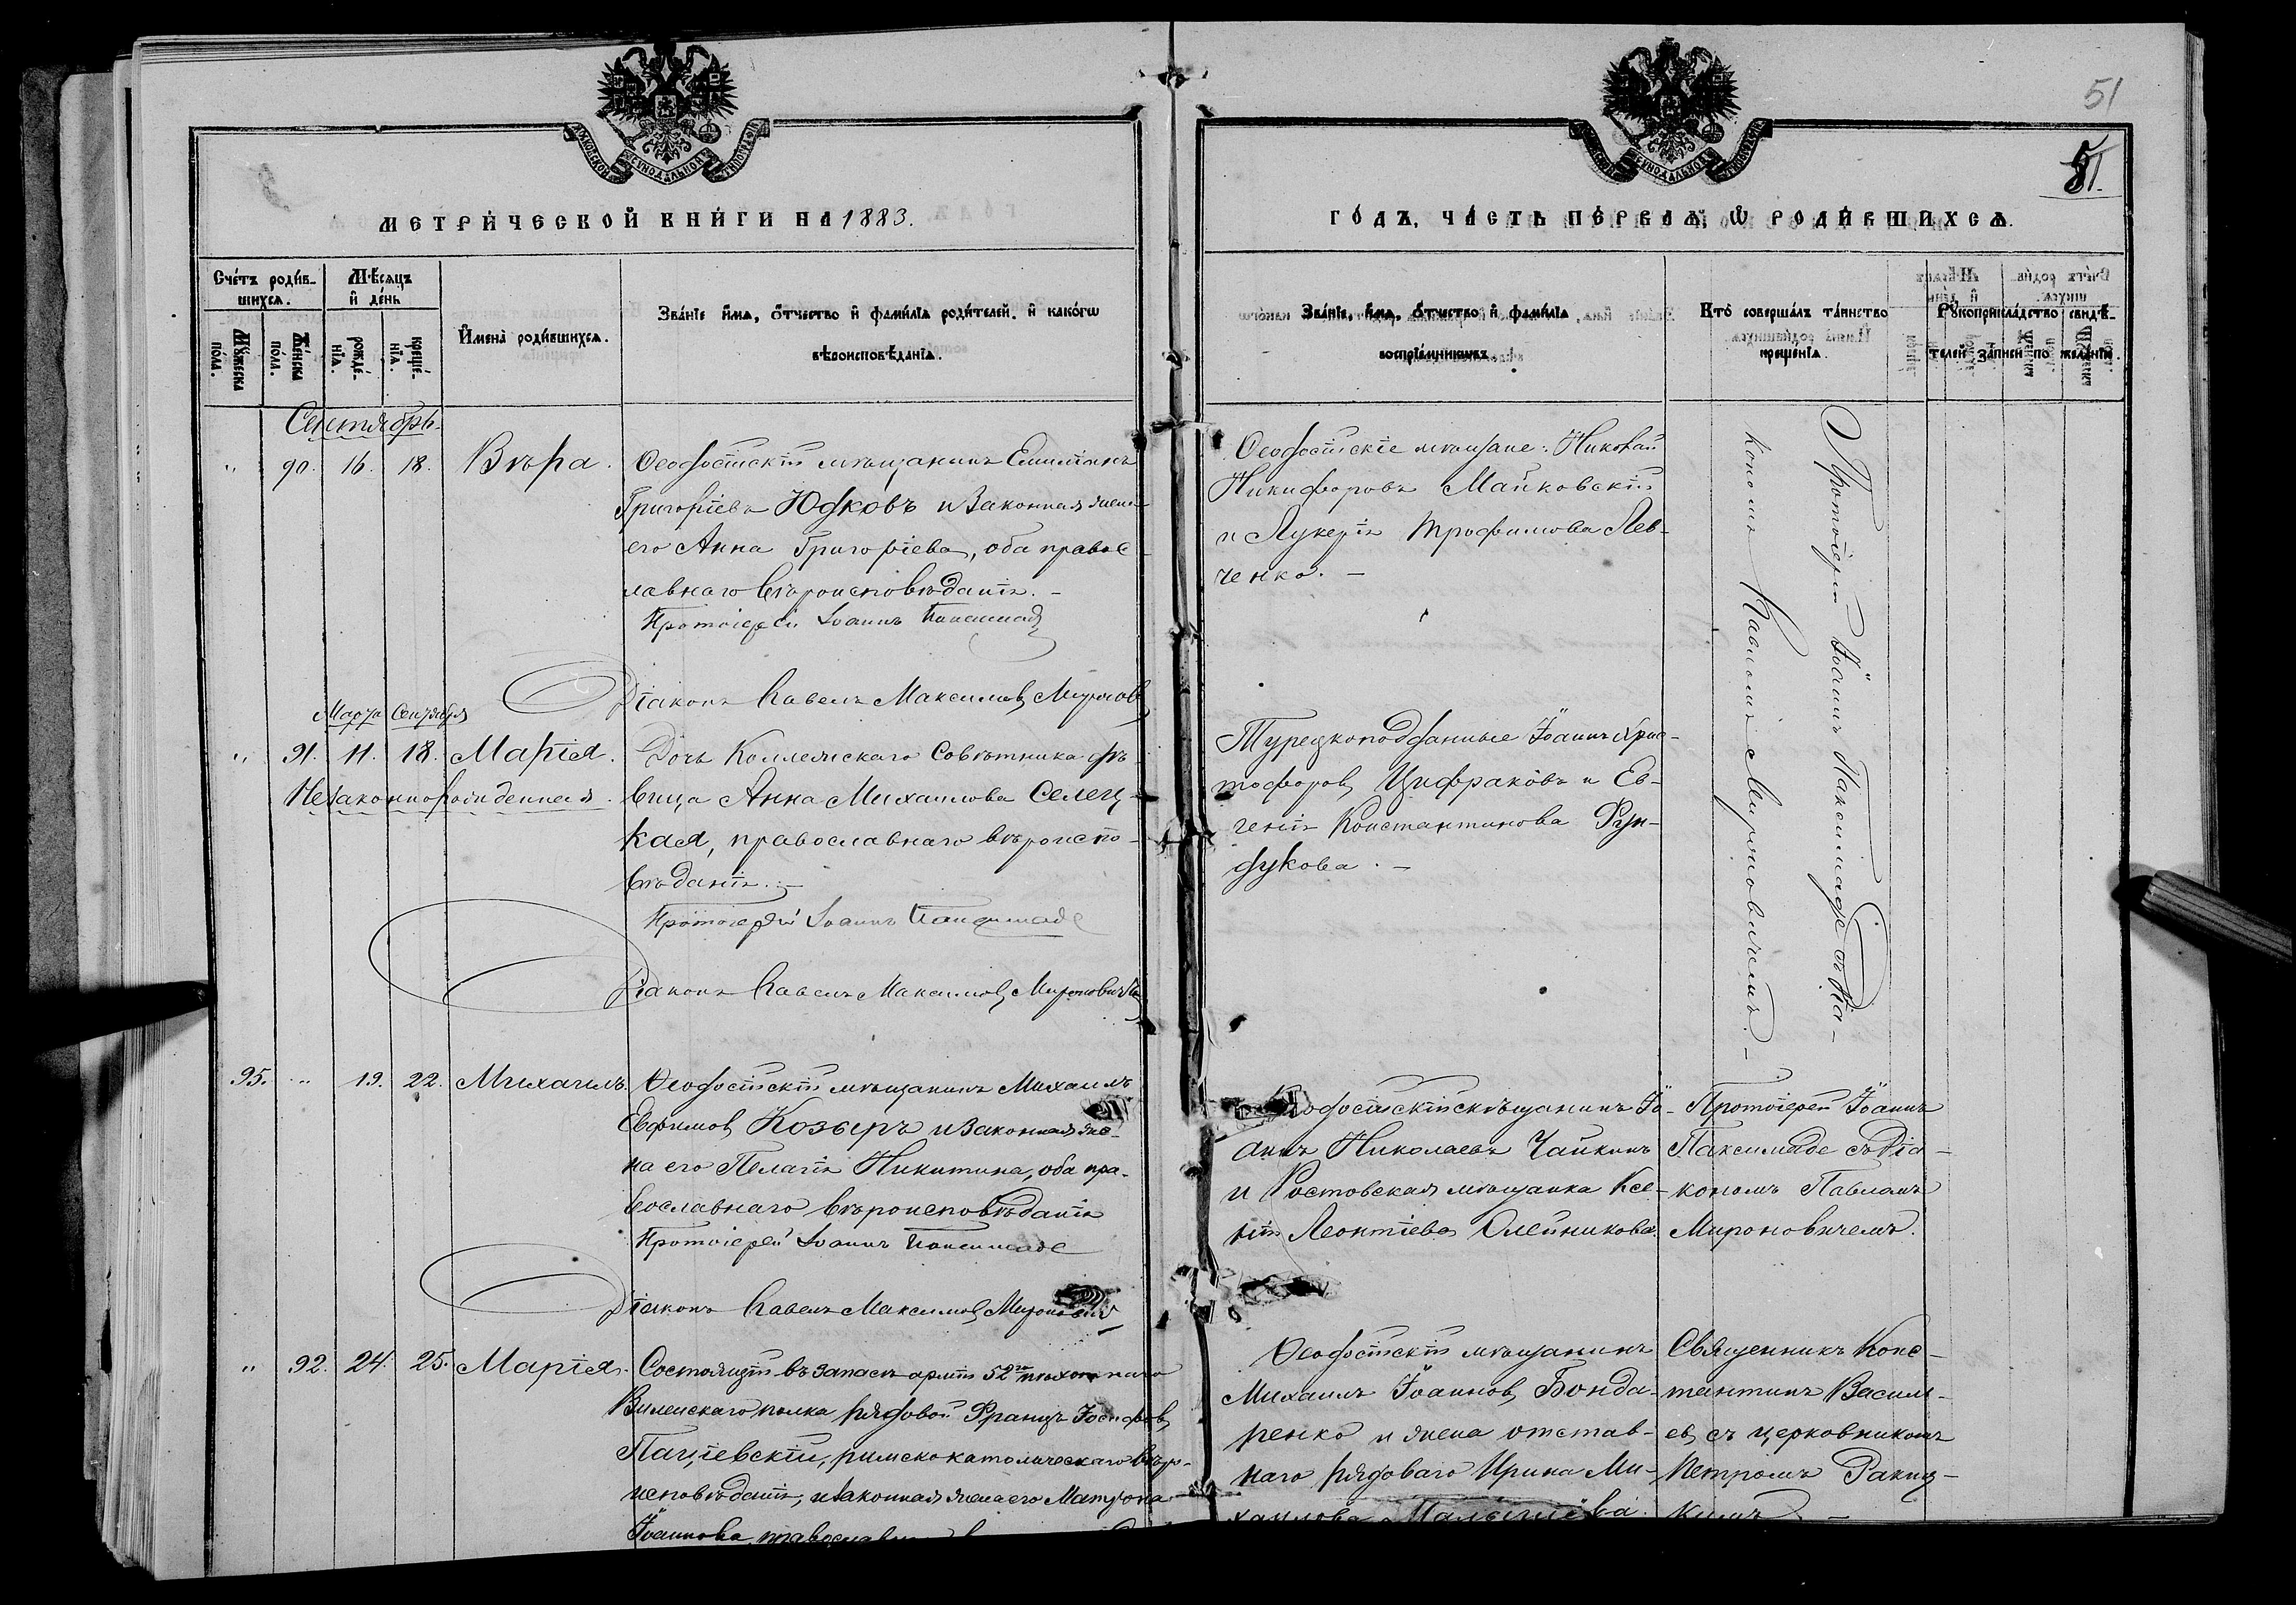 51
51.
МЕТРИЧЕСКОЙ КНИГИ НА 1883.
ГОДЪ, ЧАСТЬ ПЕРВАЯ, Ѡ РОДИВШИХСЯ.
Счетъ родив-
шихся.
Мѣсяцъ
и день
Мужеска
пола.
Женска
пола.
рожде-
нія.
креще-
нія.
Имена родившихся.
Званіе имя, отчество и фамилія родителей, и какогѡ
вѣроисповѣданія.
Званіе, имя, отчество и фамилія
воспріемникѡвъ.
Кто совершалъ таинство
крещенія.
Рукоприкладство свидѣ-
телей записи по желанію
Сентябрь.
" 90. 16. 18. Вѣра.
Ѳеодосійскій мѣщанинъ Емиліанъ
Григоріевъ Юдковъ и законная жена
его Анна Григоріева, оба право-
лавнаго вѣроисповѣданія. -
Протоіерей Іоаннъ Паксимаде
Діаконъ Павелъ Максимовъ Мироновичъ
Ѳеодосійскіе мѣщане: Николай
Никифоровъ Майковскій
и Лукерія Трофимова Лев-
ченко. -
Протоіерей Іоаннъ Паксимаде съ діа-
кономъ Павломъ Мироновичемъ. -
Марта Сентября
" 91. 11. 18. Марія.
Незаконнорожденная.
Дочь Коллежскаго Совѣтника дѣ-
вица Анна Михаилова Селец-
кая, православнаго вѣроиспо-
вѣданія. -
Протоіерей Іоаннъ Паксимаде
Діаконъ Павелъ Максимовъ Мироновичъ
Турецкоподданные Іоаннъ Хрис-
тофоровъ Цифраковъ и Ев-
генія Константинова Фун-
дукова. -
95. " 19. 22. Михаилъ.
Ѳеодосійскій мѣщанинъ Михаилъ
Евфимовъ Козырь и законная же-
на его Пелагія Никитина, оба пра-
вославнаго вѣроисповѣданія
Протоіерей Іоаннъ Паксимаде
Діаконъ Павелъ Максимовъ Мироновичъ
Ѳеодосійскій мѣщанинъ Іо-
аннъ Николаевъ Чайкинъ
и Ростовская мѣщанка Ксе-
нія Леонтіева Олейникова.
Протоіерей Іоаннъ
Паксимаде съ діа-
кономъ Павломъ
Мироновичемъ.
" 92. 24. 25. Марія.
Состоящій въ запасѣ арміи 52го пѣхотнаго
Виленскаго полка рядовой Францъ Іосифовъ
Пацѣевскій, римско католическаго вѣро-
исповѣданія, и законная жена его Матрона
Іоаннова, православнаго
Ѳеодосійскій мѣщанинъ
Михаилъ Іоанновъ Бонда-
ренко и жена отстав-
наго рядоваго Ирина Ми-
хаилова Малышева.
Священникъ Конс-
тантинъ Василь-
евъ съ церковникомъ
Петромъ Ракиц-
кимъ -